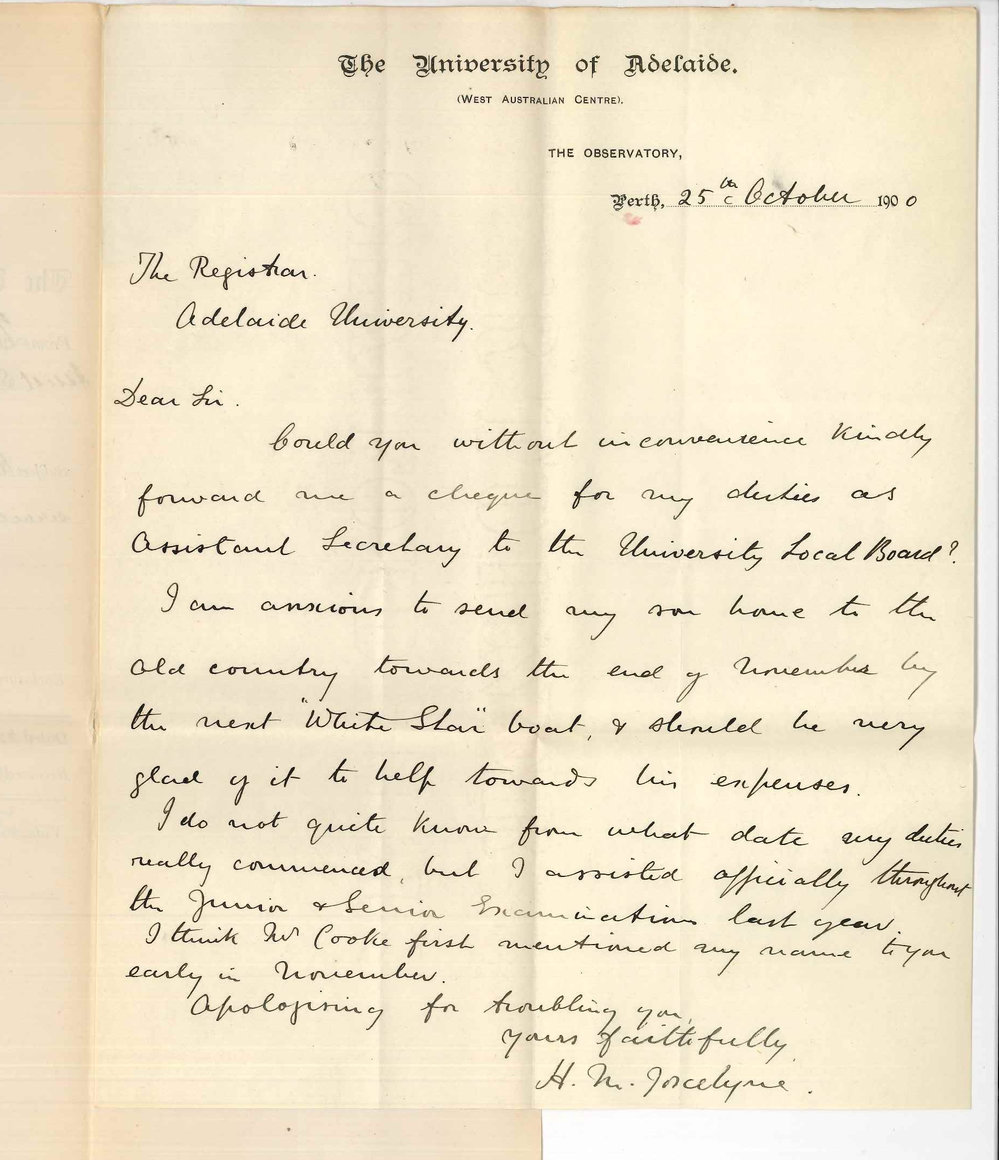 The University of Adelaide.
(West Australian Centre).
THE OBSERVATORY,
Perth, 25th October 1900
The Registrar.
Adelaide University.
Dear Sir.
Could you without inconvenience kindly
forward me a cheque for my duties as
Assistant Secretary to the University Local Board?
I am anxious to send my son home to the
old country towards the end of November by
the next "White Star" boat, & should be very
glad of it to help towards his expenses.
I do not quite know from what date my duties
really commenced, but I assisted officially throughout
the Junior & Senior Examination last year.
I think Mr Cooke first mentioned my name to you
early in November.
Apologising for troubling you,
yours faithfully
H. M. Jocelyne.